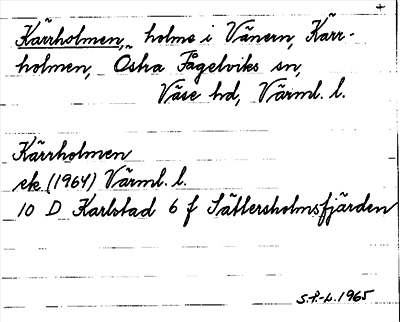 +
Kärrholmen, holme i Vänern, Kärr-
holmen, Östra Fågelviks sn,
Väse hd, Värml. l.
Kärrholmen
ek (1964) Värml. l.
10 D Karlstad 6 f Sättersholmsfjärden
S.P-L. 1965